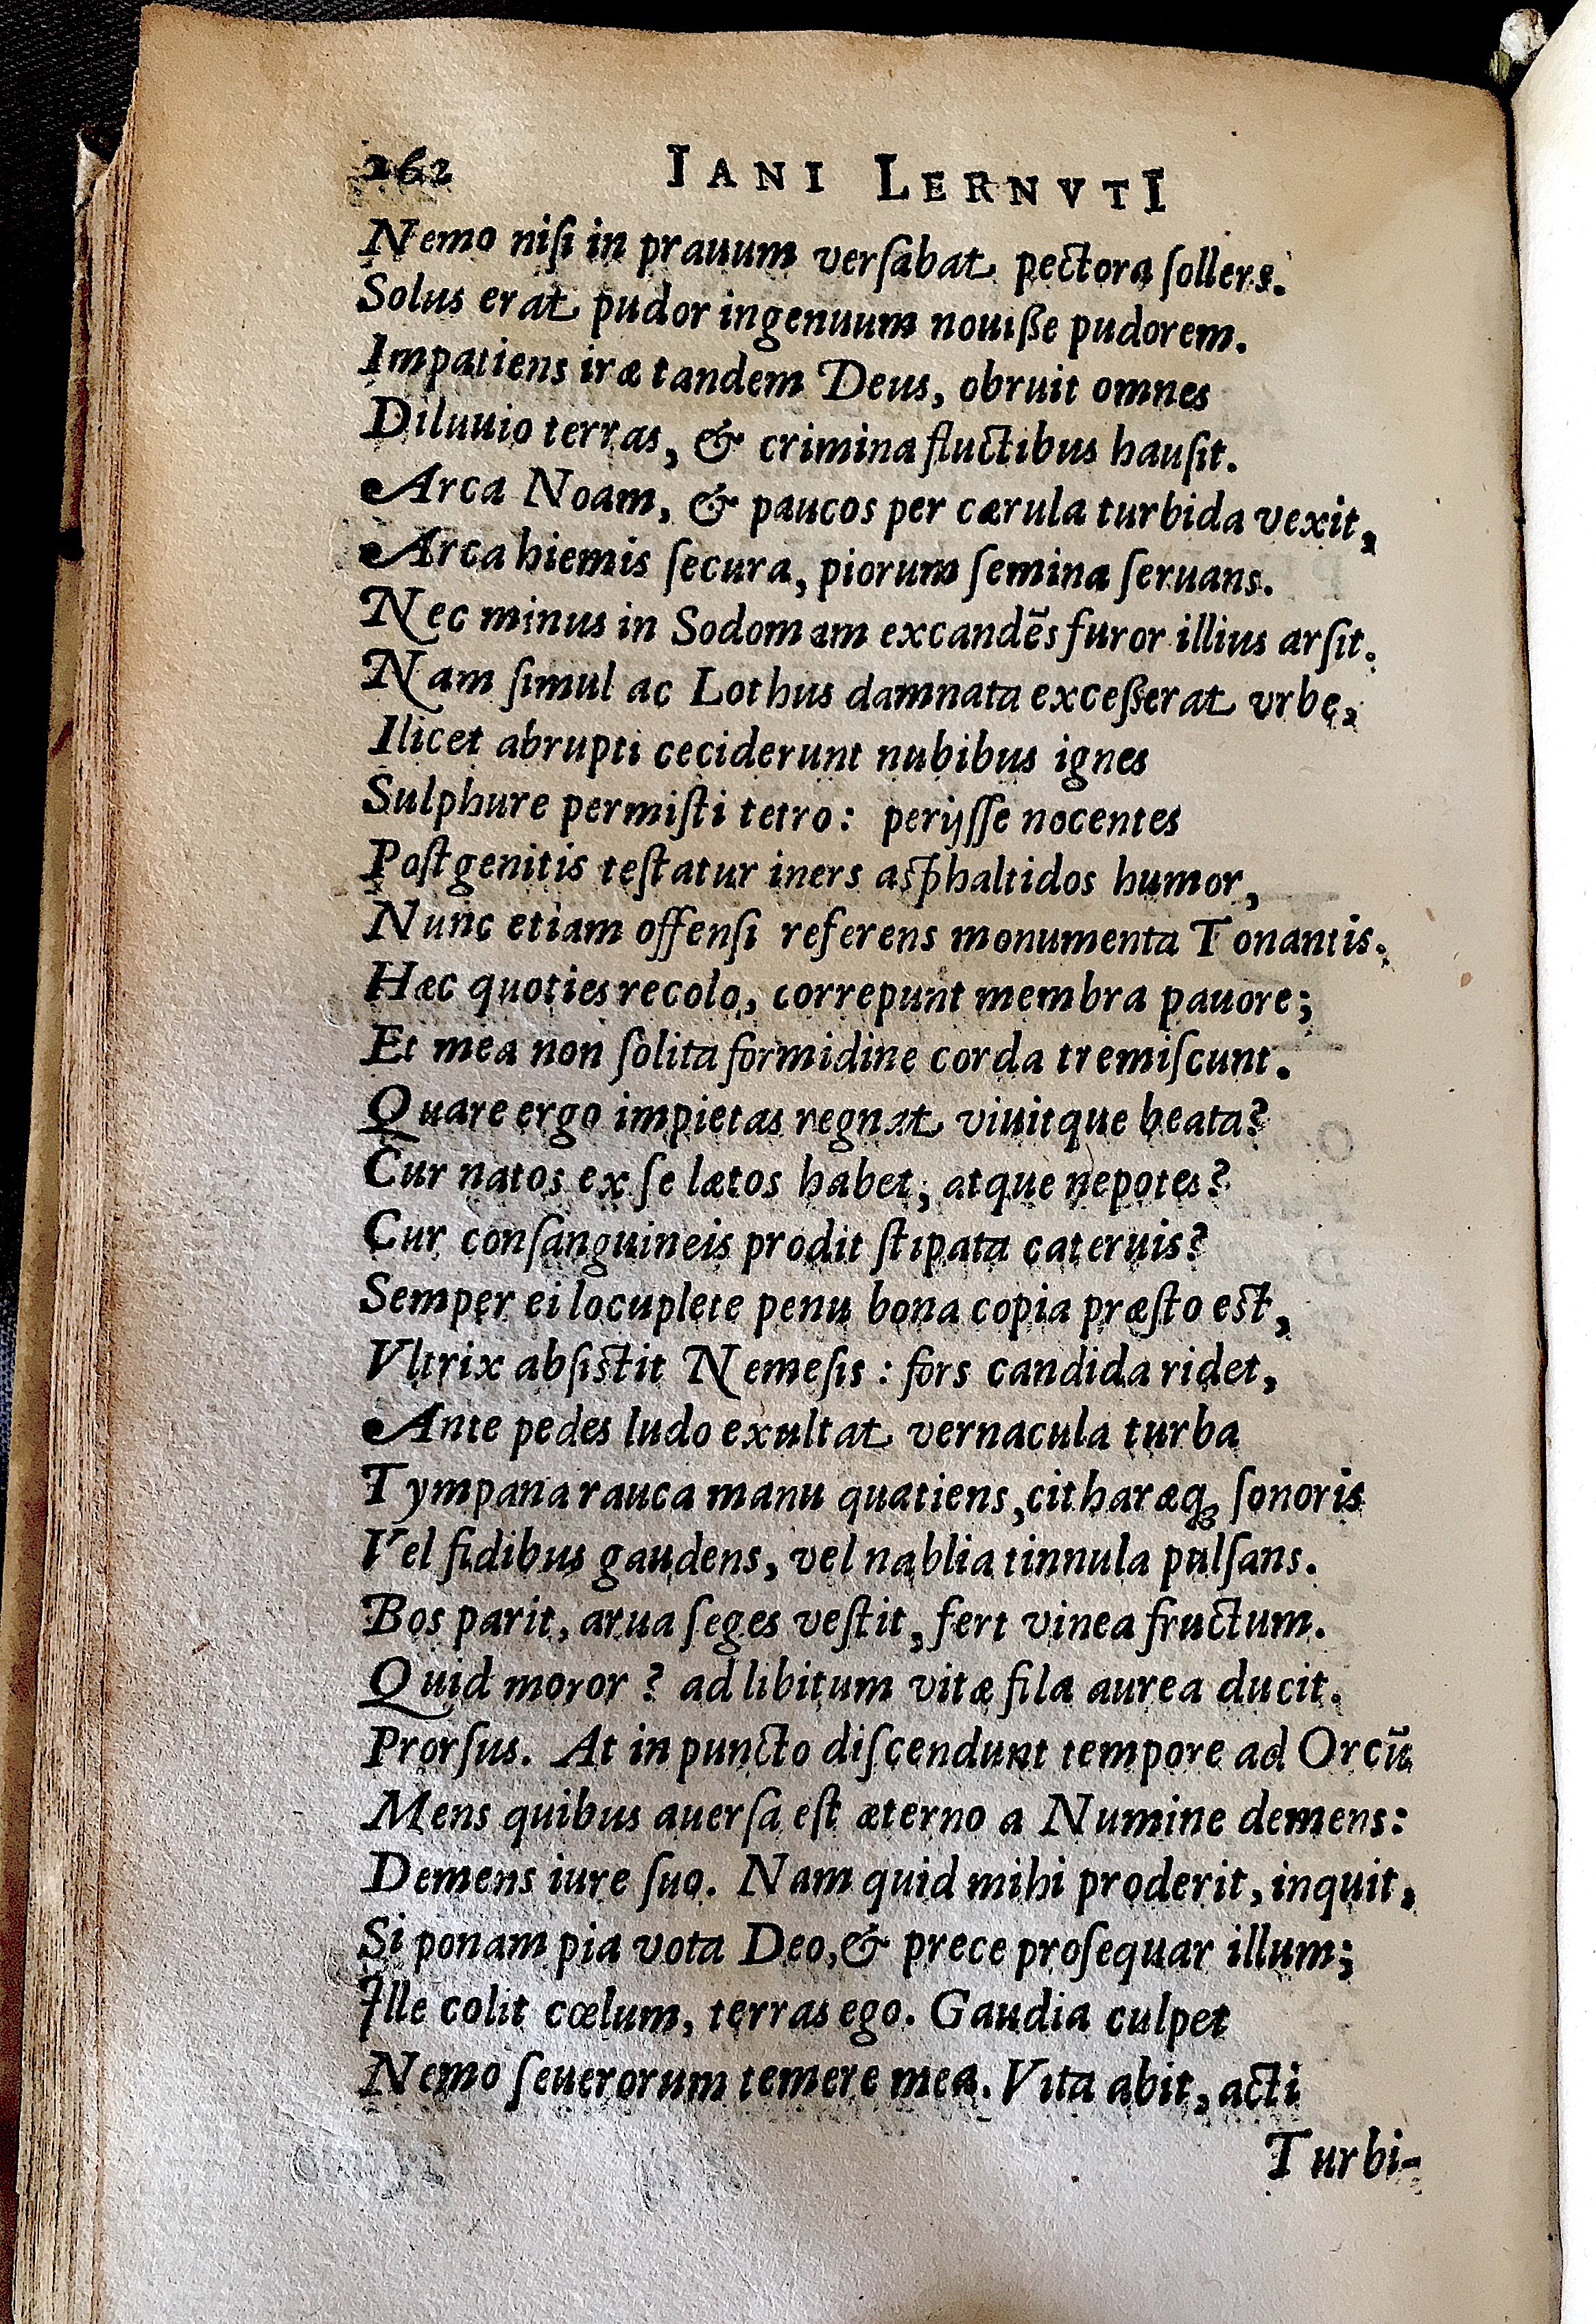 262 IANI LERNVTI
Nemo niſi in prauum verſabat pectora ſollers.
Solus erat pudor ingenuum nouiße pudorem.
Impatiens iræ tandem Deus, obruit omnes
Diluuio terras, & crimina fluctibus hauſit.
Arca Noam, & paucos per cærula turbida vexit,
Arca hiemis ſecura, piorum ſemina ſeruans.
Nec minus in Sodomam excandēs furor illius arſit.
Nam ſimul ac Lothus damnata exceßerat vrbe,
Ilicet abrupti ceciderunt nubibus ignes
Sulphure permiſti tetro: perijſſe nocentes
Poſtgenitis teſtatur iners aſphaltidos humor,
Nunc etiam offenſi referens monumenta Tonantis.
Hæc quoties recolo, correpunt membra pauore;
Et mea non ſolita formidine corda tremiſcunt.
Quare ergo impietas regnat viuitque beata?
Cur natos ex ſe lætos habet, atque nepotes?
Cur conſanguineis prodit ſtipata cateruis?
Semper ei locuplete penu bona copia præſto eſt,
Vltrix abſiſtit Nemeſis: fors candida ridet,
Ante pedes ludo exultat vernacula turba
Tympana rauca manu quatiens, citharæq; ſonoris
Vel fidibus gaudens, vel nablia tinnula pulſans.
Bos parit, arua ſeges veſtit, fert vinea fructum.
Quid moror? ad libitum vitæ fila aurea ducit.
Prorſus. At in puncto diſcendunt tempore ad Orcū
Mens quibus auerſa eſt æterno a Numine demens:
Demens iure ſuo. Nam quid mihi proderit, inquit,
Si ponam pia vota Deo, & prece proſequar illum;
Ille colit cœlum, terras ego. Gaudia culpet
Nemo ſeuerorum temere mea. Vita abit, acti
Turbi-